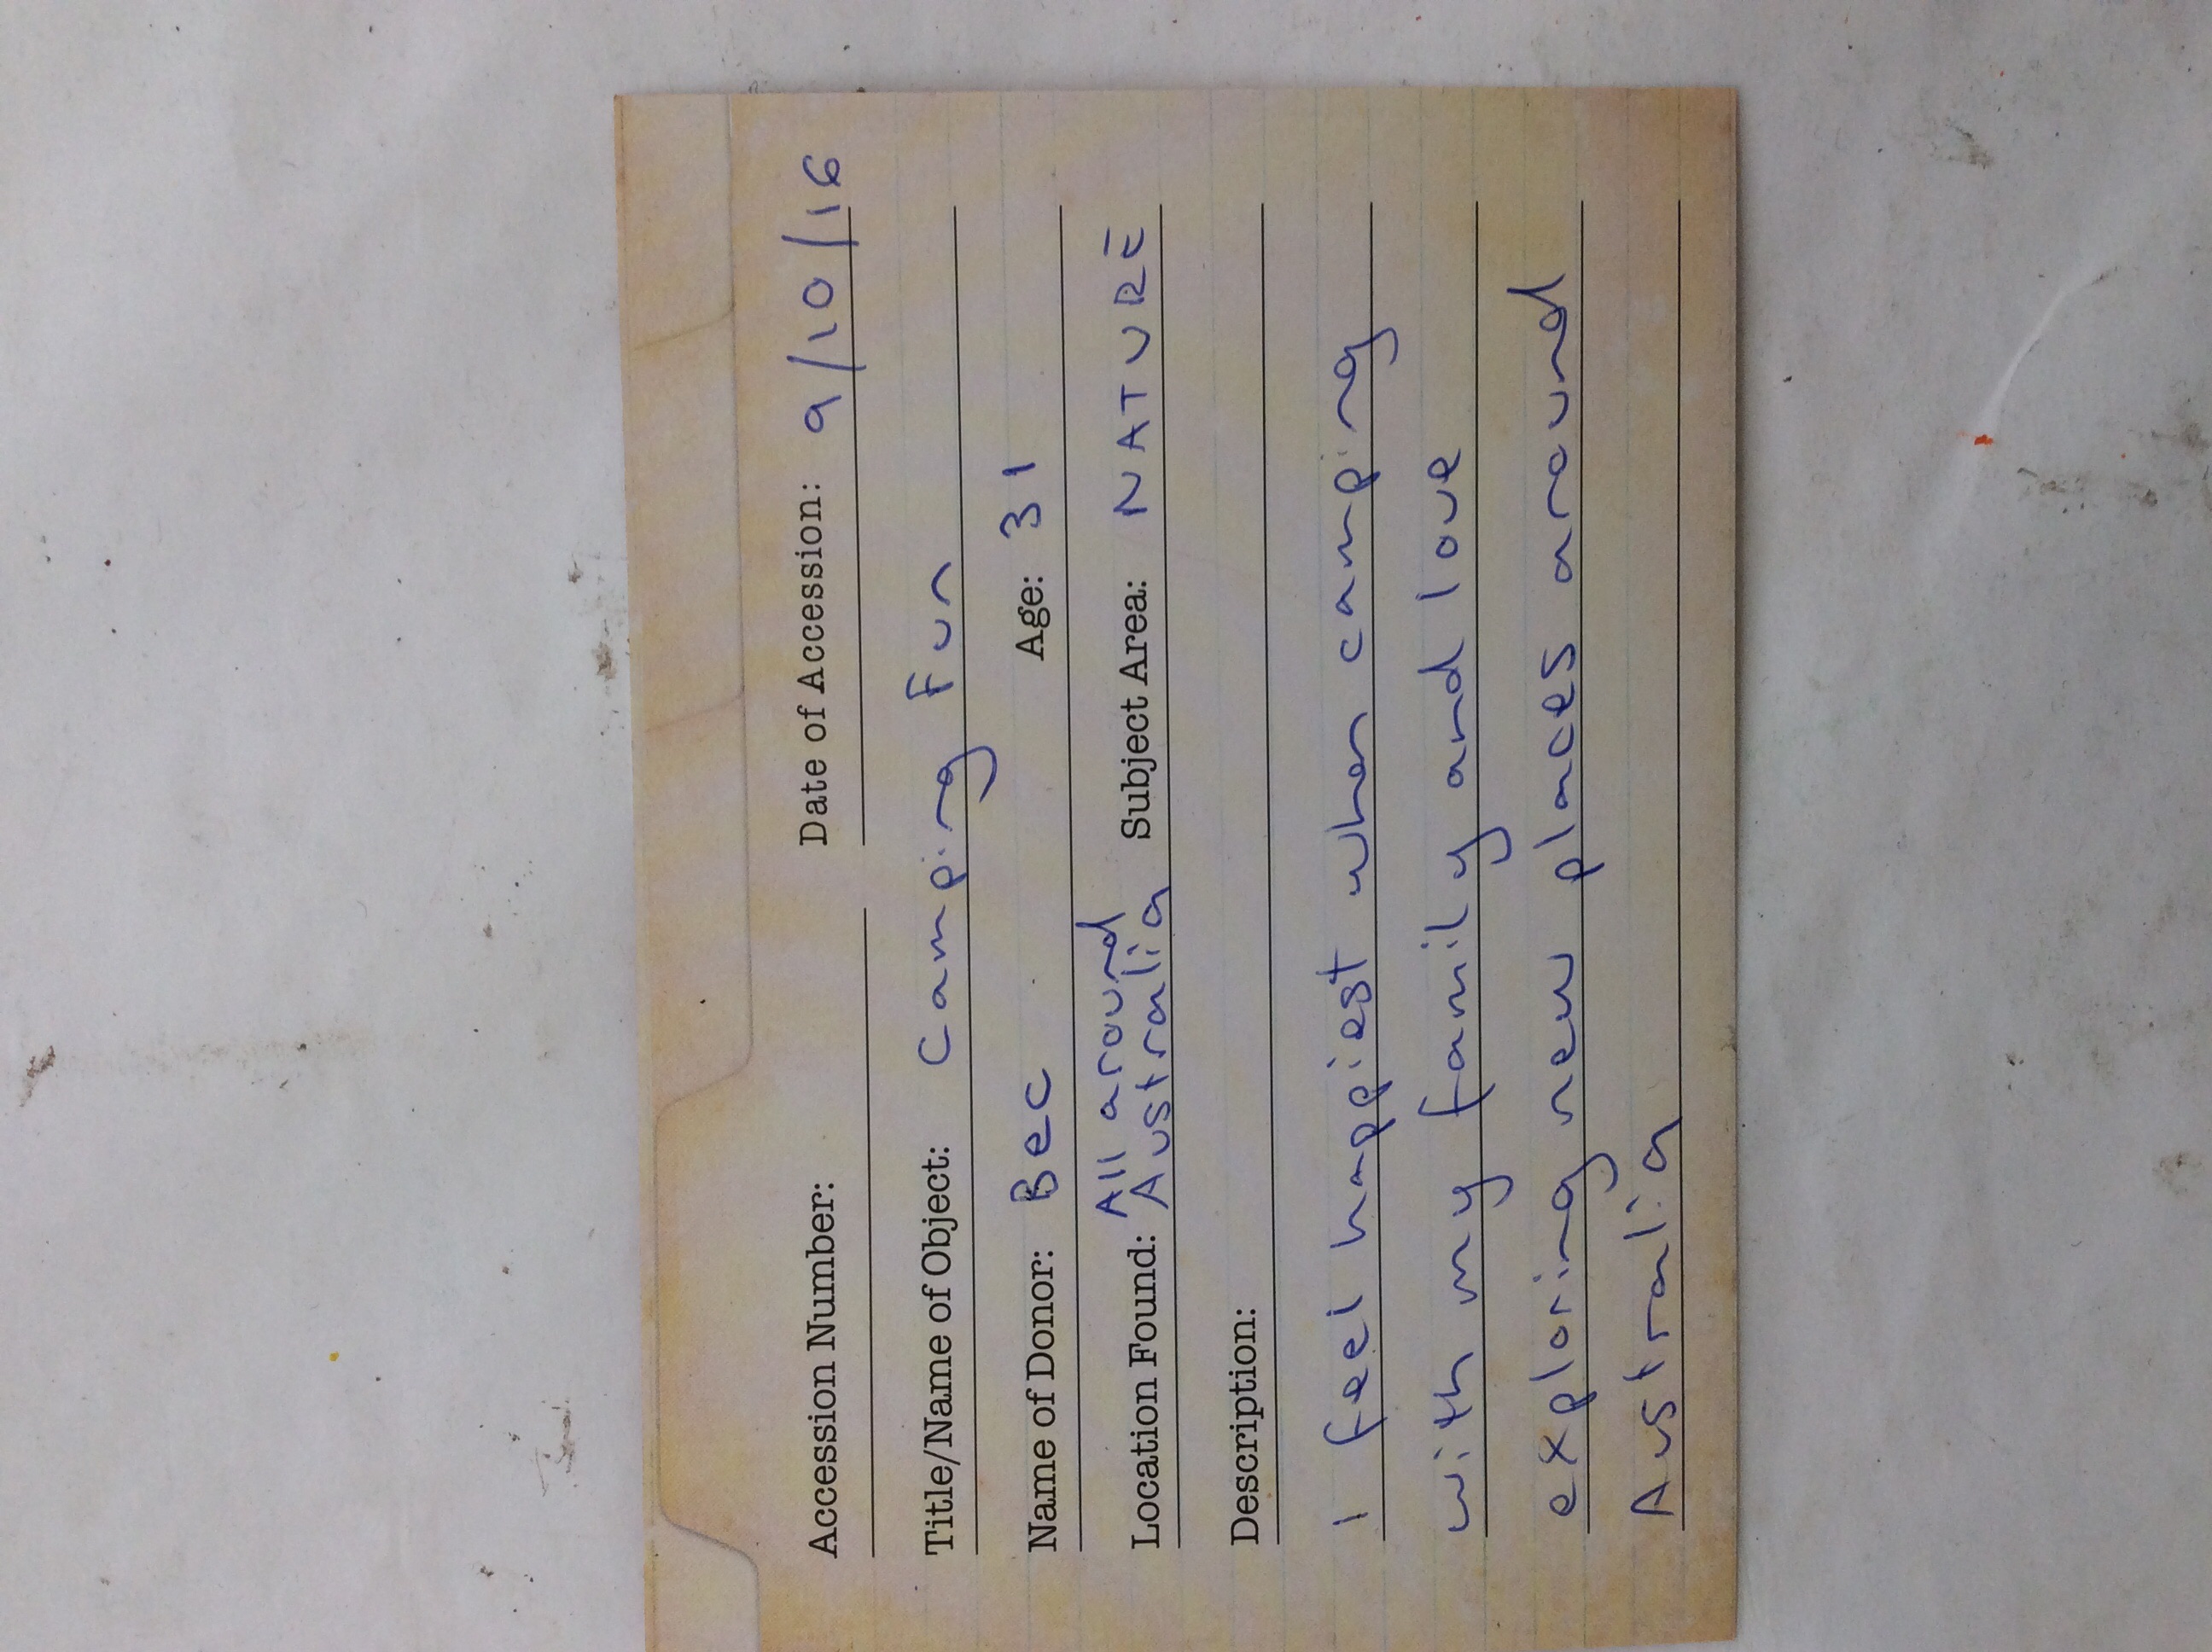 Accession Number: Date of Accession: 9/10/16
Title/Name of Object: Camping Fun
Name of Donor: Bec Age: 31
All around
Location Found: Australia Subject Area: NATURE
Description:
I feel happiest when camping
with my family and love
exploring new places around
Australia